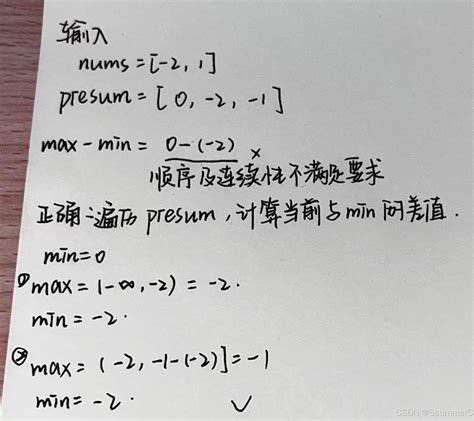 输入
nums=[-2, 1]
presum=[0, -2, -1]
max-min= 0-(-2) ×
顺序及连续性不满足要求
正确:遍历 presum, 计算当前与min的差值.
min=0
① max=(-∞, -2) = -2.
min=-2.
② max= (-2, -1-(-2)]=-1
min=-2. ✓
CSDN @SsummerC